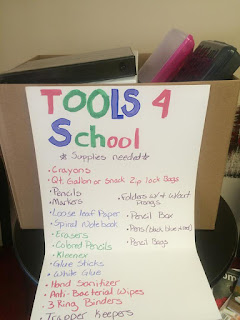 TOOLS 4
School
* Supplies needed *
• Crayons
• Qt. Gallon or Snack Zip lock Bags
• Pencils
• Markers
• Folders w/ + w/out Prongs
• Loose leaf Paper
• Pencil Box
• Spiral Notebook
• Pens (black, blue, red)
• Erasers
• Colored Pencils
• Pencil Bags
• Kleenex
• Glue Sticks
• White Glue
• Hand Sanitizer
• Anti-Bacterial Wipes
• 3 Ring Binders
• Trapper Keepers